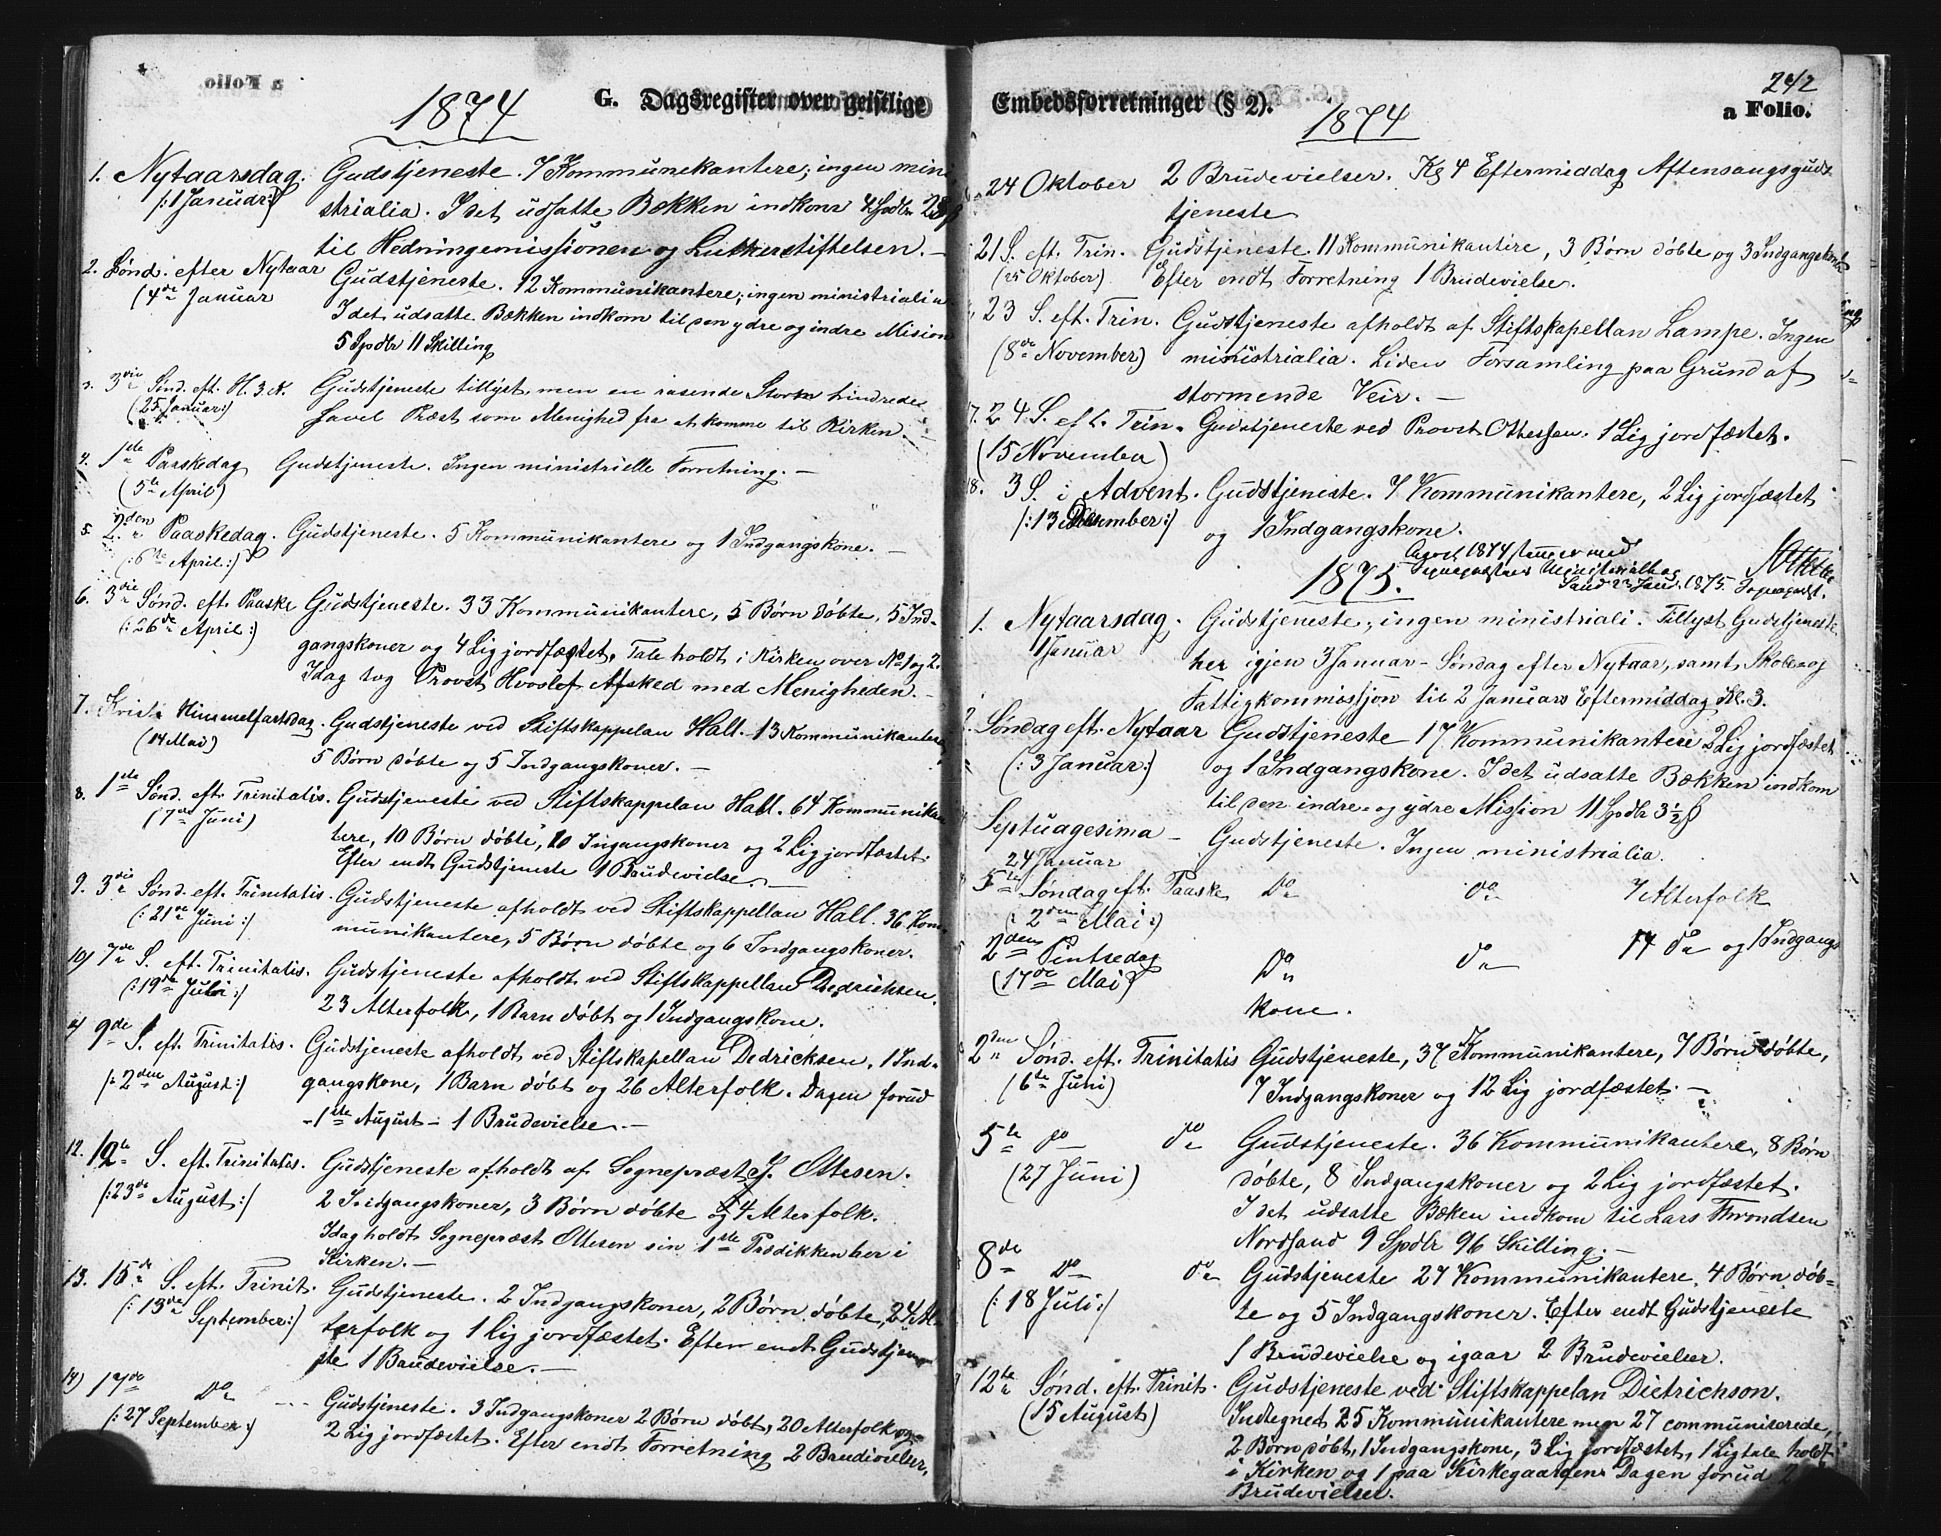 G. Dagsregister over geistlige
1874
1. Nytaarsdag. Gudstjeneste. 7 Kommunekantere; ingen mini
(:1 Januar:) strialia. I det udsatte Bækken indkom 4 Spdlr 23 ß
til Hedningemissionen og Lutherstiftelsen. –
2. Sønd. efter Nytaar Gudstjeneste. 12 Kommunikantere; ingen ministrialia
(4de Januar I det udsatte Bækken indkom til den ydre og indre Mision
5 Spdlr 11 Skilling
3. 3die Sønd. eft. H. 3. K. Gudstjeneste tillyst, men en rasende Storm hindrede
(25 Januar:) savel Præst som Menighed fra at komme til Kirken. –
4. 1ste Paaskedag Gudstjeneste. Ingen ministrielle Forretning. –
(5te April)
5. 2den Paaskedag. Gudstjeneste. 5 Kommunikantere og 1 Indgangskone. –
(:6te April:)
6. 3die Sønd. eft. Paaske Gudstjeneste. 33 Kommunikantere, 5 Børn døbte, 5 Ind-
(:26de April:) gangskoner og 4 Lig jordfæstet. Tale holdt i Kirken over No 1 og 2.
Idag tog Provst Hvoslef Afsked med Menigheden. –
7. Kristi Himmelfartsdag. Gudstjeneste ved Stiftskappelan Hall. 13 Kommunikantere
(14 Mai) 5 Børn døbte og 5 Indgangskoner. –
8. 1ste Sønd. eft. Trinitatis. Gudstjeneste ved Stiftskappelan Hall. 64 Kommunikan
(7de Juni) tere, 10 Børn døbte, 10 Ingangskoner og 2 Lig jordfæstet.
Efter endt Gudstjeneste 1 Brudevielse. –
9. 3die Sønd. eft. Trinitatis. Gudstjeneste afholdt ved Stiftskappellan Hall. 36 Kom
(:21de Juni:) munikantere, 5 Børn døbte og 6 Indgangskoner.
10) 7de S. eft. Trinitatis. Gudstjeneste afholdt ved Stiftskappellan Dedricksen.
(:19de Juli:) 23 Alterfolk, 1 Barn døbt og 1 Indgangskone.
11) 9de S. eft. Trinitatis. Gudstjeneste afholdt ved Stiftskapellan Dedricksen. 1 Ind-
(:2den August:) gangskone, 1 Barn døbt og 26 Alterfolk. Dagen forud
– 1ste August – 1 Brudevielse. –
12. 12te S. eft. Trinitatis. Gudstjeneste afholdt af Sognepræst J. Ottesen.
(:23de August:) 2 Indgangskoner, 3 Børn døbte og 4 Alterfolk.
Idag holdt Sognepræst Ottesen sin 1ste Prædikken her i
Kirken. –
13. 15de S. eft. Trinit. Gudstjeneste. 2 Indgangskoner, 2 Børn døbte, 24 Al-
(:13de September:) terfolk og 1 Lig jordfæstet. Efter endt Gudstjene
ste 1 Baudevielse. –
14) 17de Do Gudstjeneste. 3 Indgangskoner 2 Børn døbt, 20 Alterfolk og
(:27 September:) 2 Lig jordfæstet. Efter endt Forretning 2 Brudevielser.
242
Embedsforretninger (§ 2).
a Folio.
1874
24 Oktober 2 Brudevielser. Kl 4 Eftermiddag Aftensangsguds
tjeneste
21 S. eft. Trin. Gudstjeneste. 11 Kommunikantere, 3 Børn døbte og 3 Indgangskoner
(25 Oktober) Efter endt Forretning 1 Brudevielse.
23 S. eft. Trin. Gudstjeneste afholdt af Stiftskapellan Lampe. Ingen
(8de November) ministrialia. Liden Forsamling paa Grund af
stormende Veir. –
17. 24 S. eft. Trin. Gudstjeneste ved Provst Ottessen. 1 Lig jordfæstet.
(15 November)
18. 3 S. i Advent. Gudstjeneste. 7 Kommunikantere, 2 Lig jordfæstet
(:13 December:) og 1 Indgangskone.
1874 stemmer med
1875. Sognepræstens Ministerialbog
Sand 23 Jan. 1875
1. Nytaarsdag. Gudstjeneste, ingen ministriali. Tillyst Gudstjeneste
1 Januar her igjen 3 Januar – Søndag efter Nytaar, samt Skole og
Fattigkommissjon til 2 Januars Eftermiddag Kl. 3.
2. Søndag eft. Nytaar Gudstjeneste 17 Kommunikantere 2 Lig jordfæstet
(:3 Januar:) og 1 Indgangskone. I det udsatte Bækken indkom
til den indre og ydre Mission 11 Spdlr 3½ ß
Septuagesima – Gudstjeneste. Ingen ministrialia.
24 Januar
5te Søndag eft. Paaske Do do 7 Alterfolk
(:2den Mai:)
2den Pintsedag Do do 14 do og 1 Indgangs
(17de Mai) kone.
2den Sønd. eft. Trinitatis Gudstjeneste, 37 Kommunikantere, 7 Børn døbte,
(6te Juni) 7 Indgangskoner og 12 Lig jordfæstet. –
5te do do Gudstjeneste. 36 Kommunikantere, 8 Børn
(27 Juni) døbte, 8 Indgangskoner og 2 Lig jordfæstet.
I det udsatte Bæken indkom til Lars Throndsen
Nordsand 9 Spdlr 96 Skilling. –
8de Do do Gudstjeneste 27 Kommunikantere, 4 Børn døb-
(:18 Juli:) te og 5 Indgangskoner. Efter endt Gudstjeneste
1 Brudevielse og igaar 2 Brudevielser.
12te Sønd. eft. Trinit. Gudstjeneste ved Stiftskappelan Dietrichson.
(15 August) Indtegned 25 Kommunikantere men 27 communiserede,
2 Børn døbt, 1 Indgangskone, 3 Lig jordfæstet, 1 Ligtale holdt
i Kirken og 1 paa Kirkegaarden. Dagen forud 2
Brudevielser.